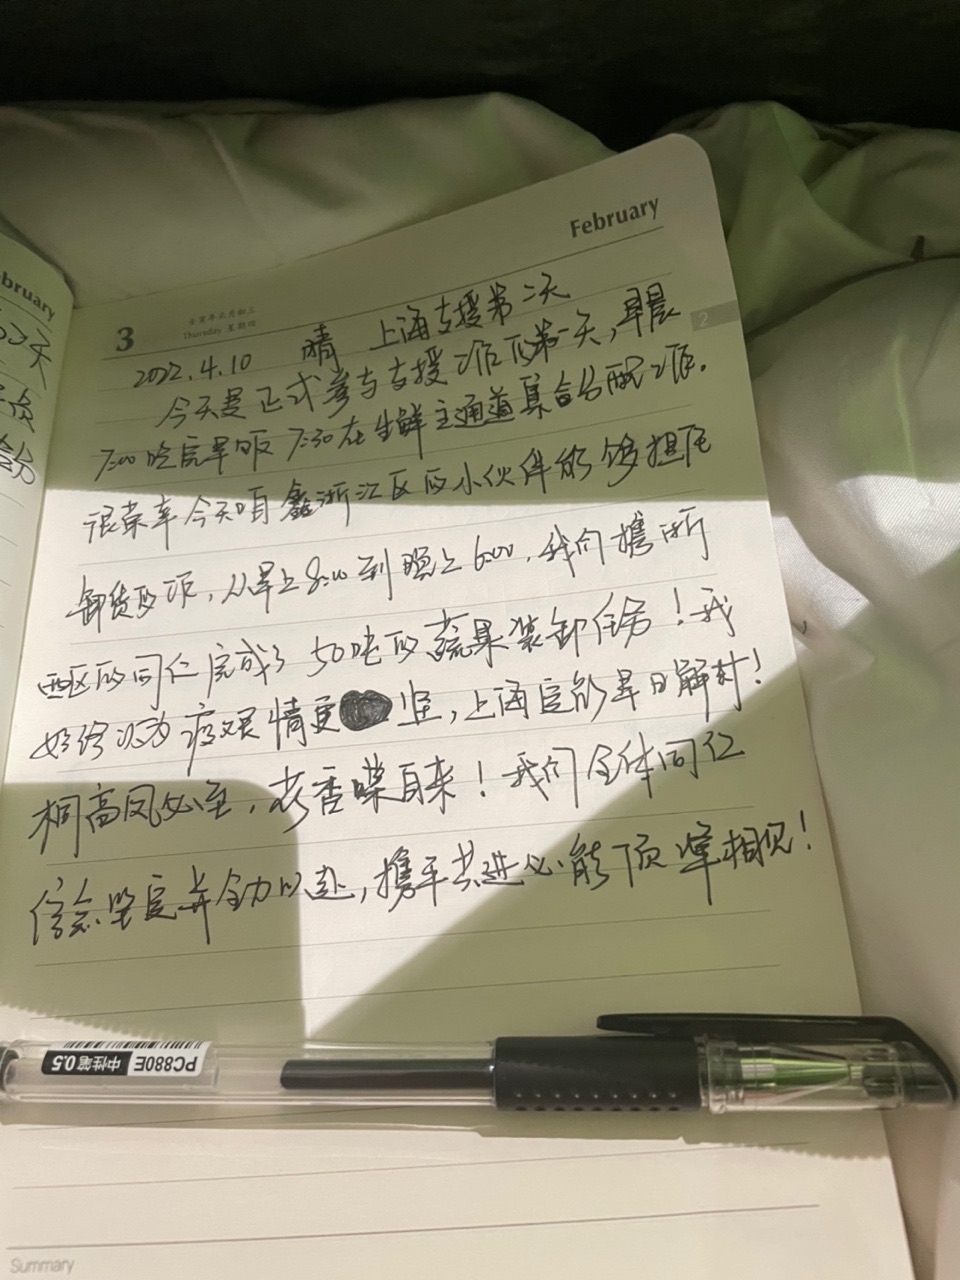 bruary
天
点
台分
February
3
壬寅年正月初三
Thursday 星期四
2
2022.4.10 晴 上海支援第二天
今天是正式参与支援工作的第一天,早晨
7:00吃完早饭 7:30在生鲜主通道集合分配工作.
很荣幸今天咱鑫浙江区的小伙伴能够担任
卸货的工作,从早上8:00到晚上6:00,我们携浙
西区的同仁完成了50吨的蔬果装卸任务!我
始终认为疫艰情更坚,上海定能早日解封!
桐高凤必至,花香蝶自来!我们全体同仁
信念坚定并全力以赴,携手共进必能顶峰相见!
PC880E 中性笔0.5
Summary